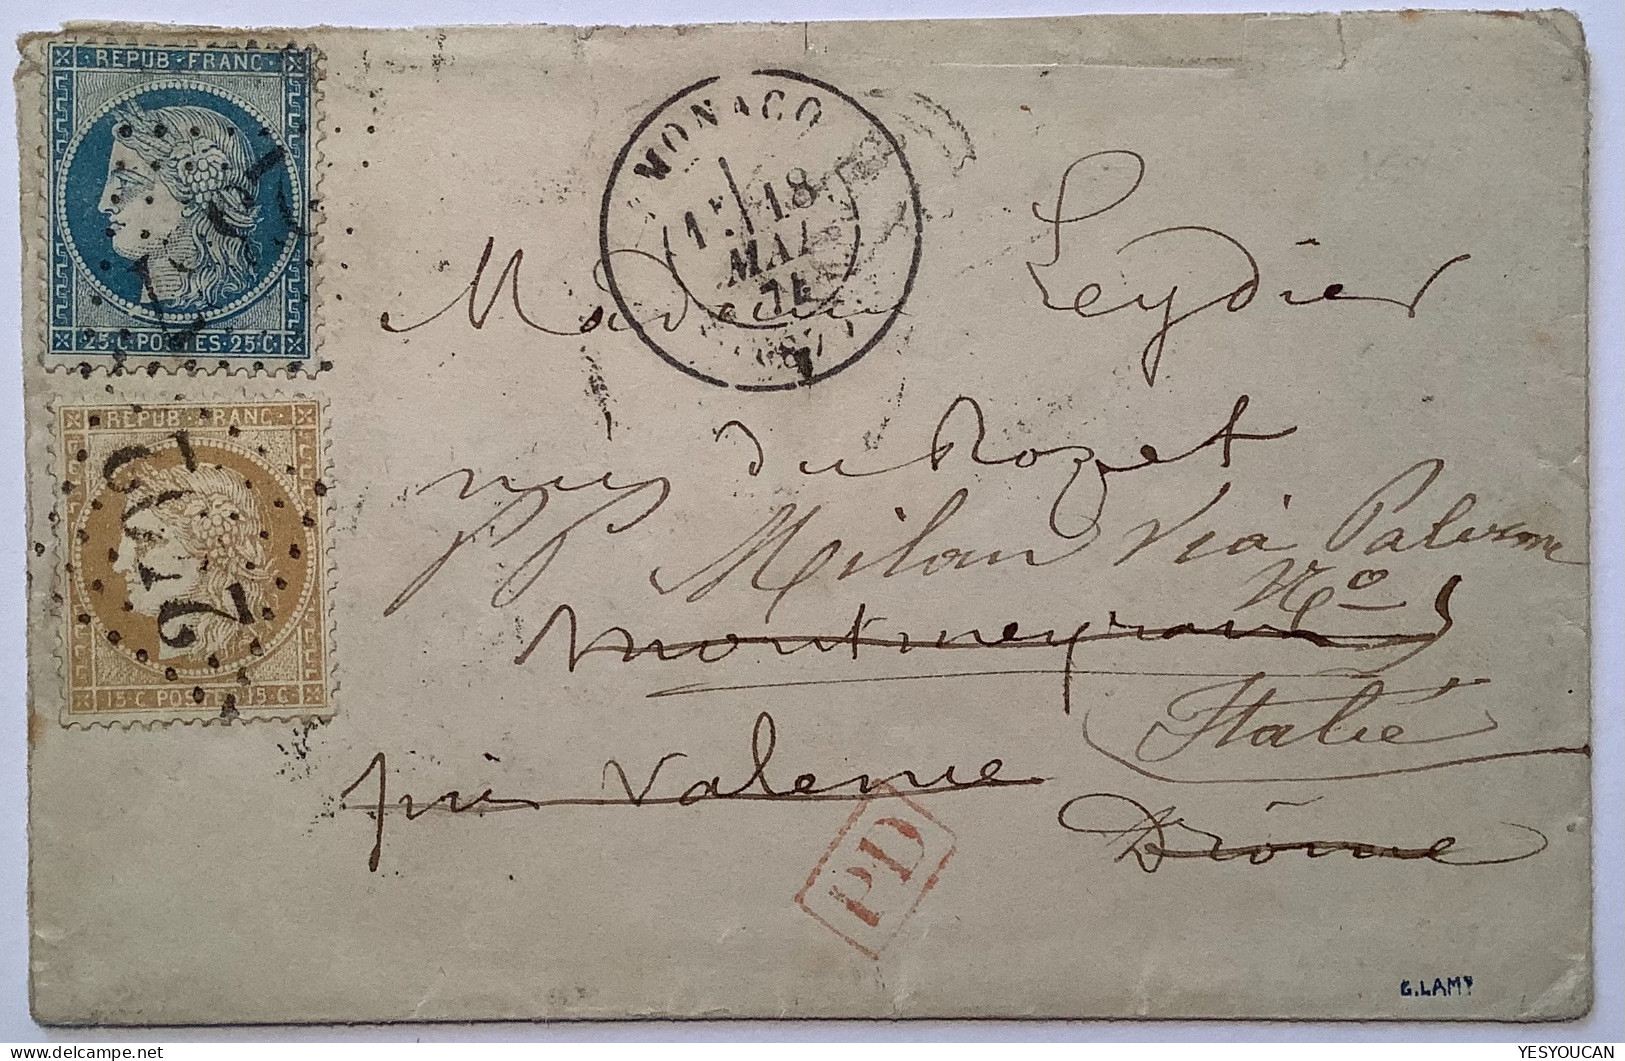 REPUB·FRANC·
25·C·POSTES·25·C
REPUB·FRANC·
2602
15·C POSTES 15·C
MONACO
18
MAI
74
(87)
Madame Leydier
du Rozet
PP Milan Via Palerme
No 5
Montmeyran
Italie
près Valence
Drôme
PD
G.LAMY
YESYOUCAN